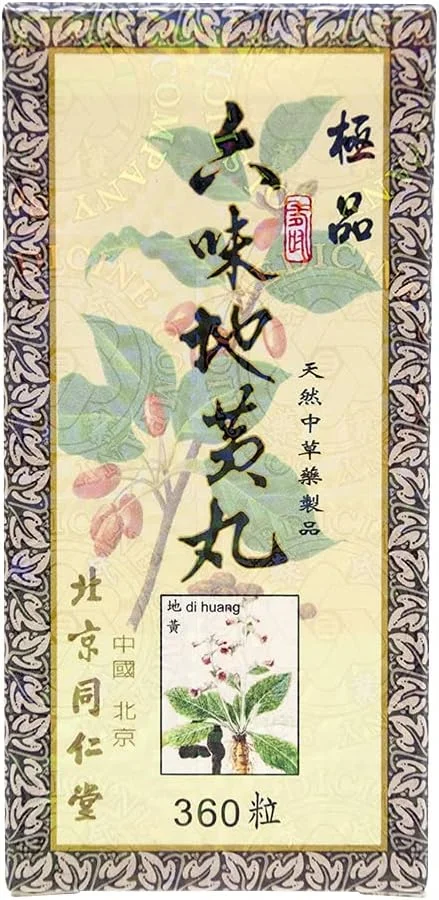 極品
六味地黃丸
天然中草藥製品
地 di huang
黃
北京同仁堂
中國 北京
360粒